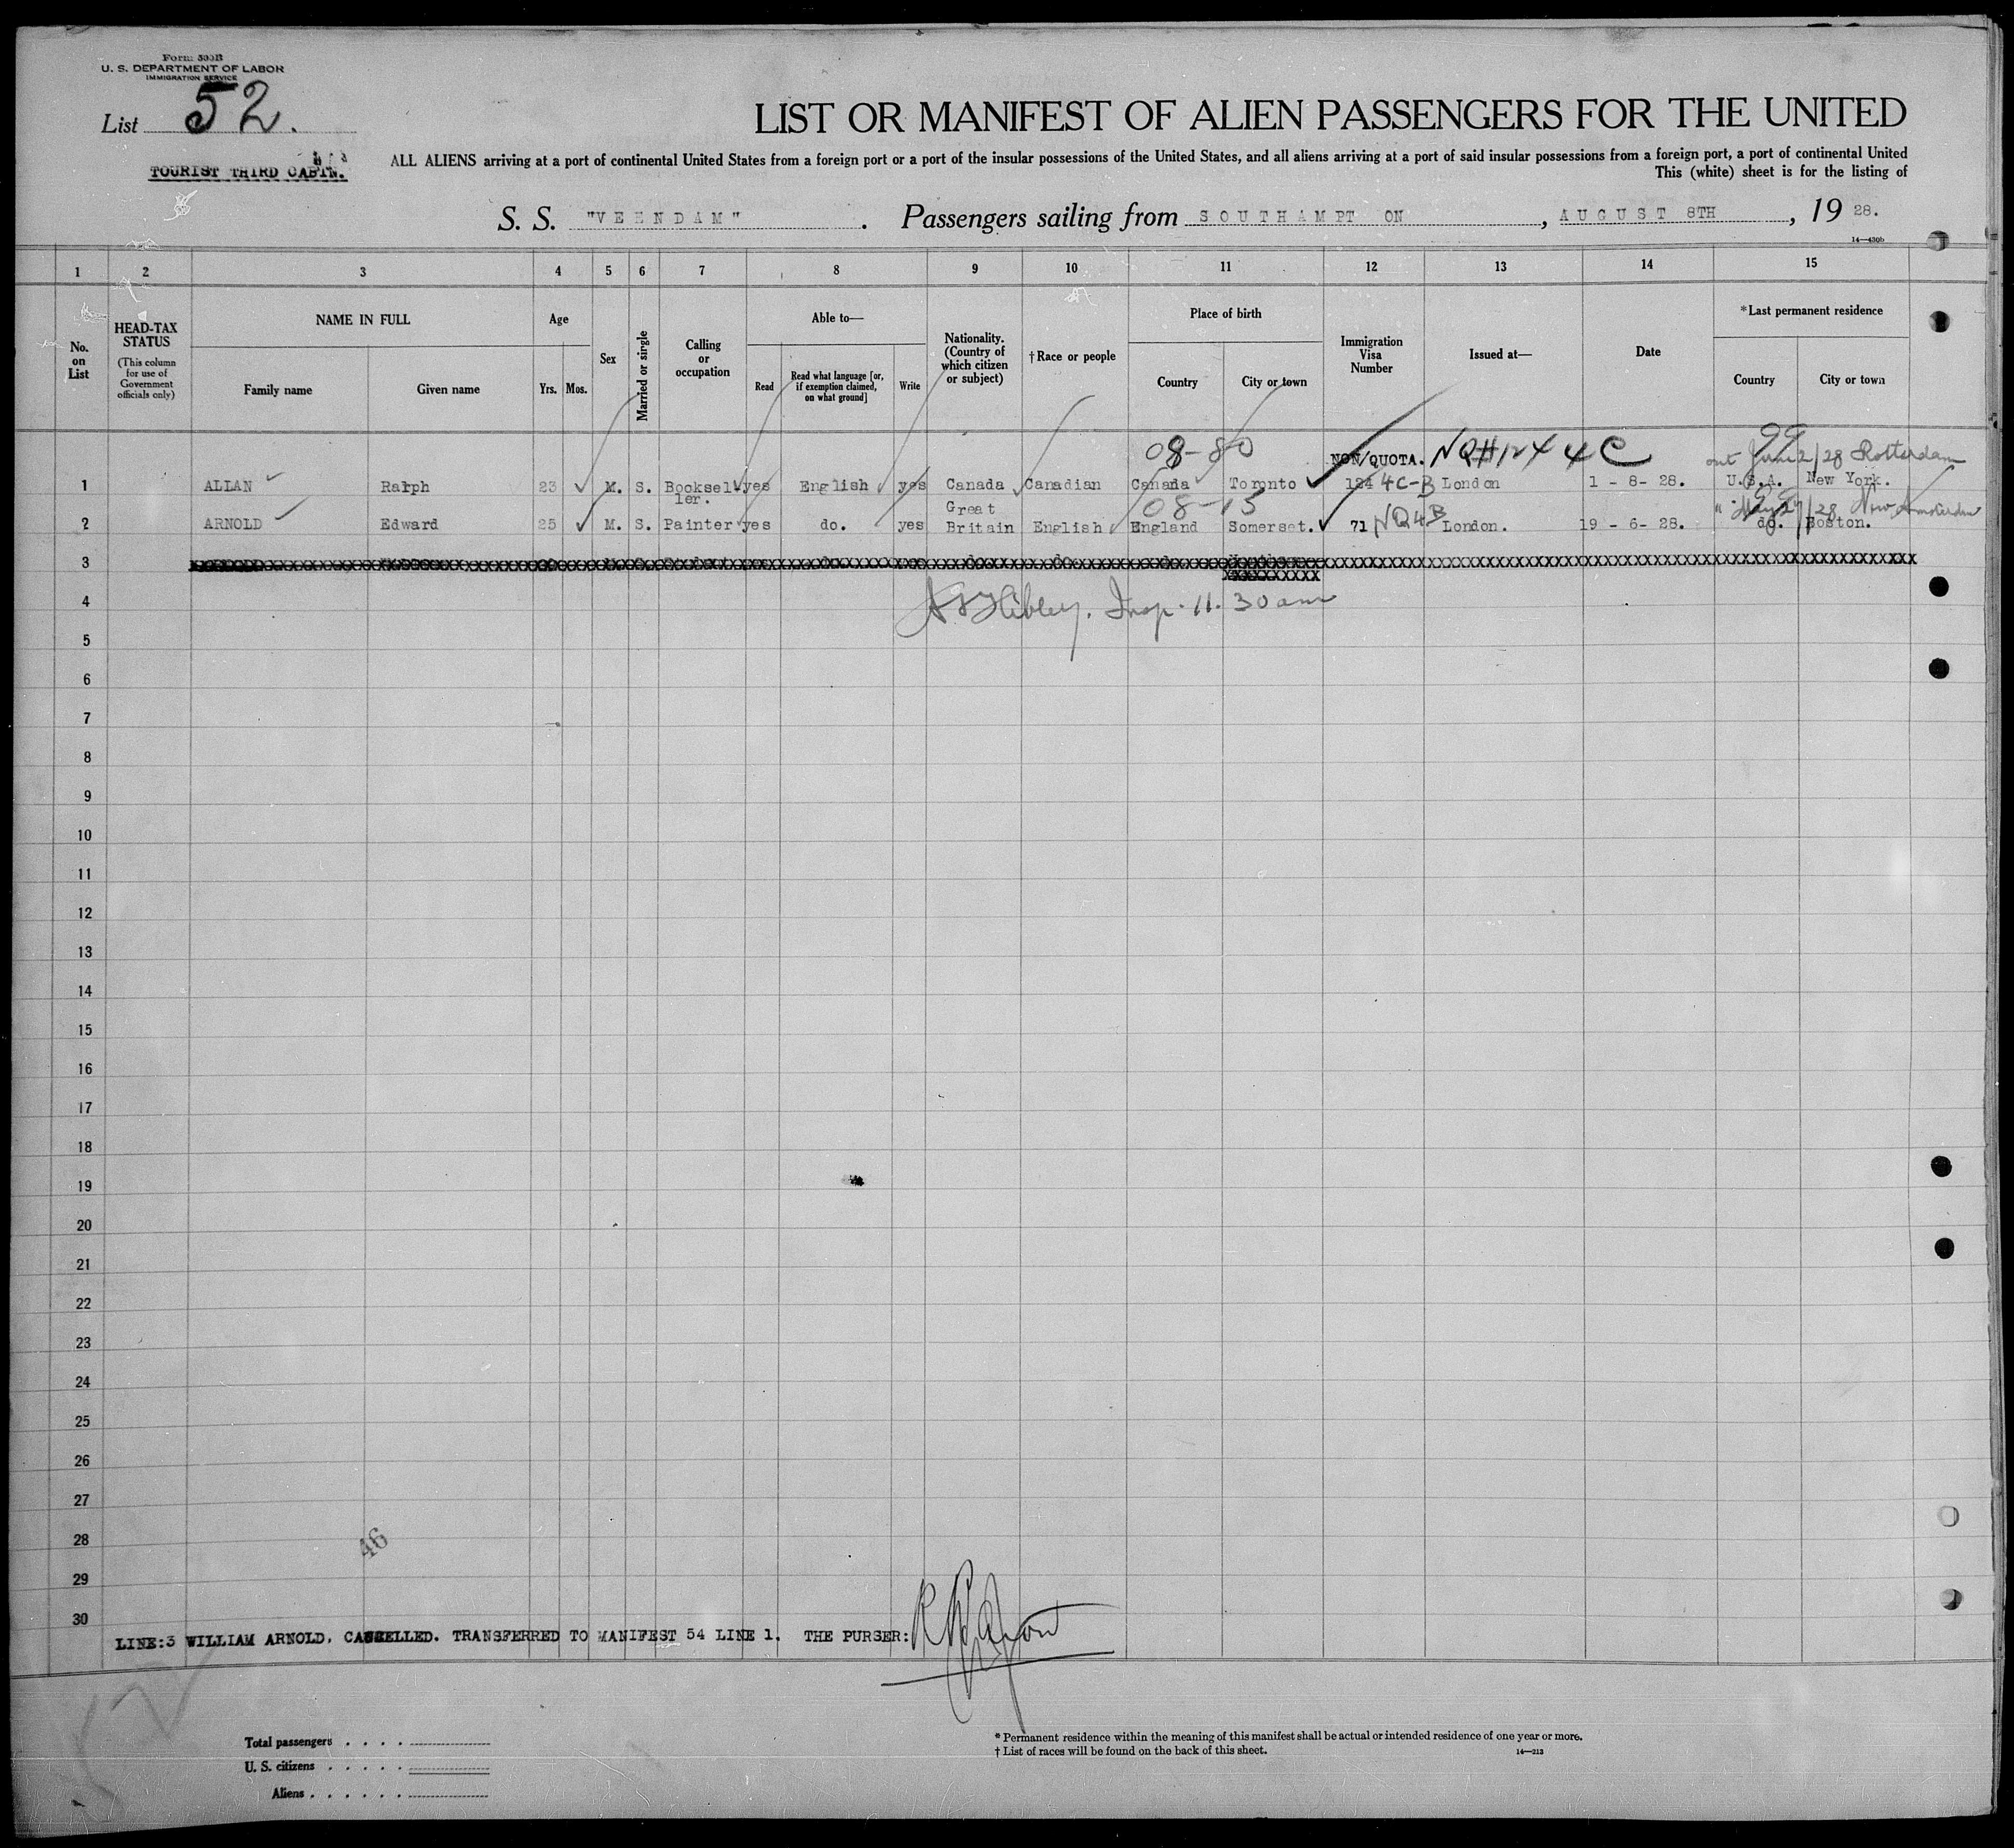 Form 500B
U. S. DEPARTMENT OF LABOR
IMMIGRATION SERVICE
List 52.
TOURIST THIRD CABIN.
LIST OR MANIFEST OF ALIEN PASSENGERS FOR THE UNITED
ALL ALIENS arriving at a port of continental United States from a foreign port or a port of the insular possessions of the United States, and all aliens arriving at a port of said insular possessions from a foreign port, a port of continental United
This (white) sheet is for the listing of
S. S. "VEENDAM". Passengers sailing from SOUTHAMPTON, AUGUST 8TH, 19 28.
14—430b
1 2 3 4 5 6 7 8 9 10 11 12 13 14 15
No. on List
HEAD-TAX STATUS
(This column for use of Government officials only)
NAME IN FULL
Family name Given name
Age
Yrs. Mos.
Sex
Married or single
Calling or occupation
Able to—
Read Read what language [or, if exemption claimed, on what ground] Write
Nationality. (Country of which citizen or subject)
†Race or people
Place of birth
Country City or town
Immigration Visa Number
Issued at—
Date
*Last permanent residence
Country City or town
08-80 NON/QUOTA. out June 2/28 Rotterdam
1 ALLAN Ralph 23 M. S. Booksel- yes English yes Canada Canadian Canada Toronto 124 4C-B London 1 - 8- 28. U.S.A. New York.
ler. Great 08-15
2 ARNOLD Edward 25 M. S. Painter yes do. yes Britain English England Somerset. 71 NQ4B London. 19 - 6- 28. do. Boston.
3
4 Insp. 11. 30 am
5
6
7
8
9
10
11
12
13
14
15
16
17
18
19
20
21
22
23
24
25
26
27
28
46
29
30
LINE:3 WILLIAM ARNOLD, CANCELLED. TRANSFERRED TO MANIFEST 54 LINE 1. THE PURSER:
Total passengers . . . .
U. S. citizens . . . . .
Aliens . . . . . .
* Permanent residence within the meaning of this manifest shall be actual or intended residence of one year or more.
† List of races will be found on the back of this sheet. 14—213